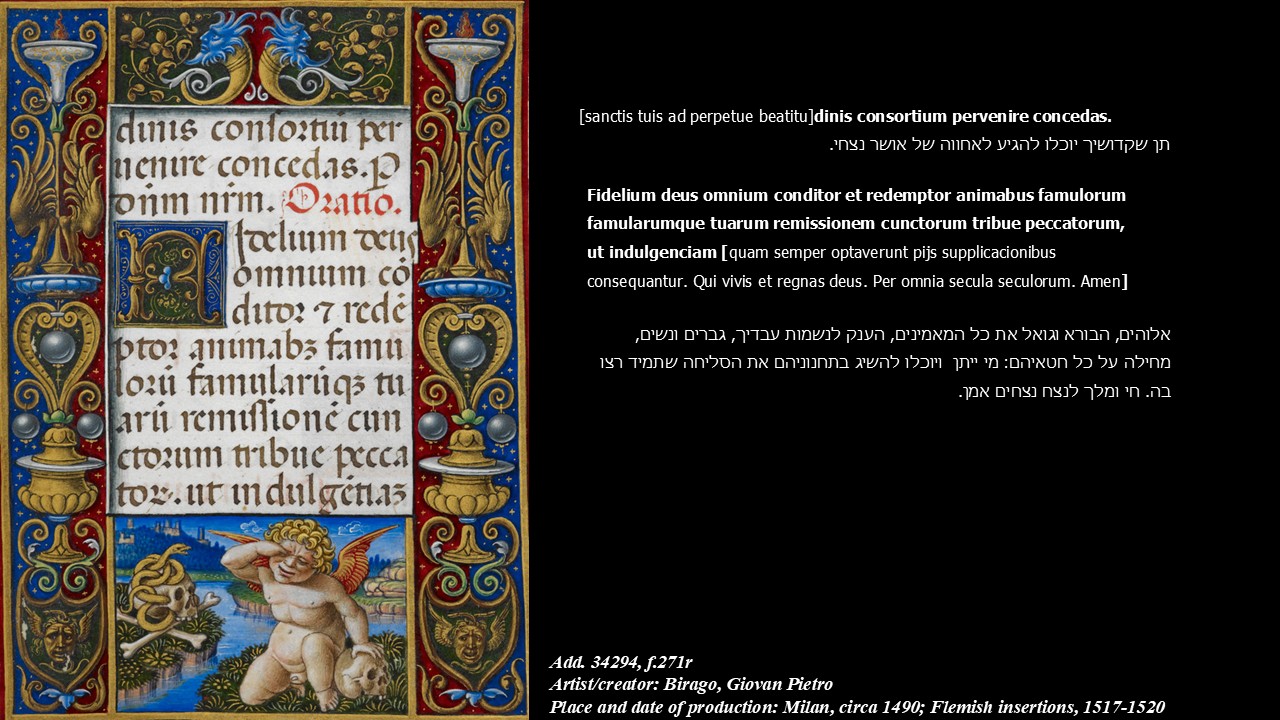 dinis consortiū per
uenire concedas. P
dn̄m nr̄m. Oratio.
Fidelium deus
omnium cō
ditor ⁊ redē
ptor animabꝫ famu
lorū famularūqꝫ tu
arū remissionē cun
ctorum tribue pecca
tor. ut indulgētiaꝫ
[sanctis tuis ad perpetue beatitu]dinis consortium pervenire concedas.
תן שקדושיך יוכלו להגיע לאחווה של אושר נצחי.
Fidelium deus omnium conditor et redemptor animabus famulorum
famularumque tuarum remissionem cunctorum tribue peccatorum,
ut indulgenciam [quam semper optaverunt pijs supplicacionibus
consequantur. Qui vivis et regnas deus. Per omnia secula seculorum. Amen]
אלוהים, הבורא וגואל את כל המאמינים, הענק לנשמות עבדיך, גברים ונשים,
מחילה על כל חטאיהם: מי ייתן ויוכלו להשיג בתחנוניהם את הסליחה שתמיד רצו
בה. חי ומלך לנצח נצחים אמן.
Add. 34294, f.271r
Artist/creator: Birago, Giovan Pietro
Place and date of production: Milan, circa 1490; Flemish insertions, 1517-1520